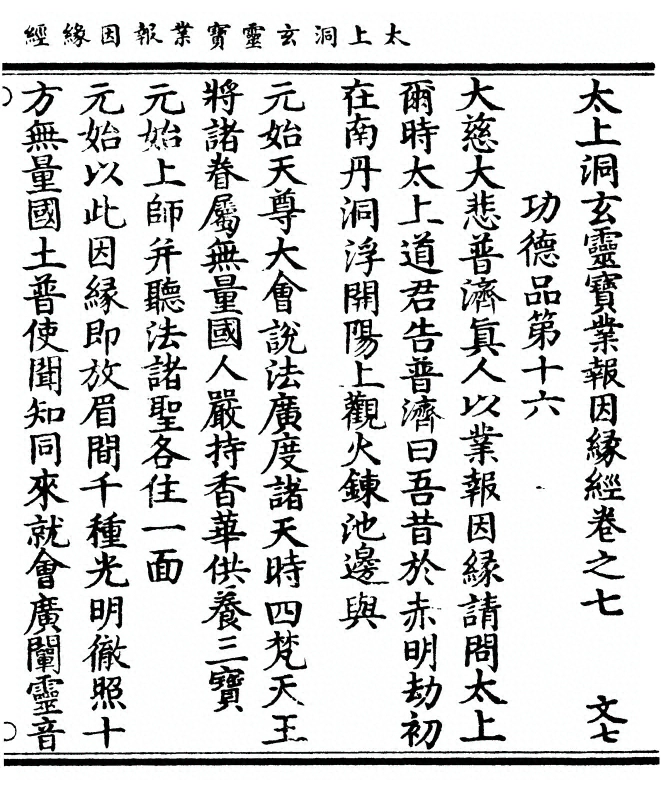 太上洞玄靈寶業報因緣經
太上洞玄靈寶業報因緣經卷之七 文七
功德品第十六
大慈大悲普濟眞人以業報因緣請問太上
爾時太上道君告普濟曰吾昔於赤明劫初
在南丹洞浮開陽上觀火鍊池邊與
元始天尊大會說法廣度諸天時四梵天王
將諸眷屬無量國人嚴持香華供養三寶
元始上師并聽法諸聖各住一面
元始以此因緣即放眉間千種光明徹照十
方無量國土普使聞知同來就會廣闡靈音